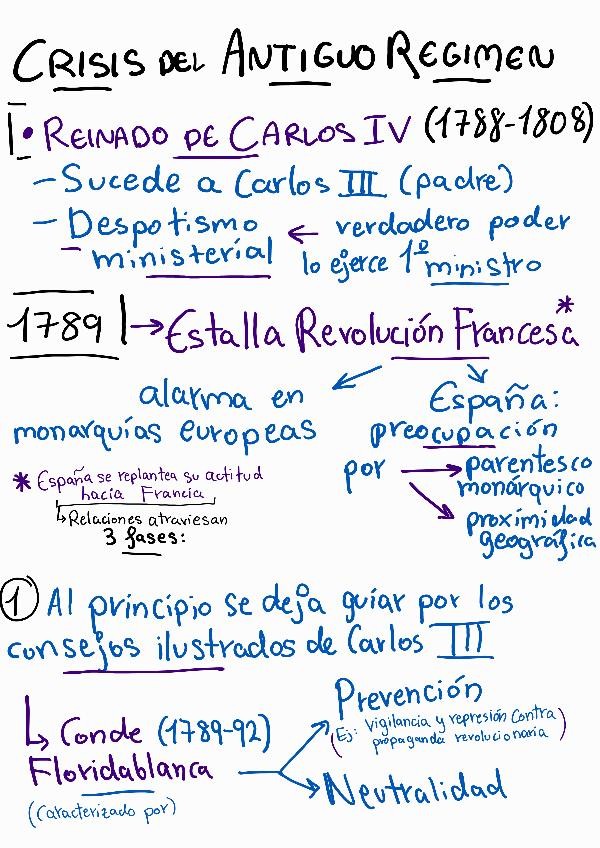 CRISIS DEL ANTIGUO REGIMEN
1• REINADO DE CARLOS IV (1788-1808)
- Sucede a Carlos III (padre)
- Despotismo ministerial ← verdadero poder lo ejerce 1º ministro
1789 |→ Estalla Revolución Francesa*
alarma en
monarquías europeas
España:
preocupación
por → parentesco
monárquico
→ proximidad
geográfica
* España se replantea su actitud
hacia Francia
↳ Relaciones atraviesan
3 fases:
① Al principio se deja guiar por los
consejos ilustrados de Carlos III
↳ Conde (1789-92)
Floridablanca
(Caracterizado por)
Prevención
(Ej: Vigilancia y represión contra
propaganda revolucionaria)
Neutralidad